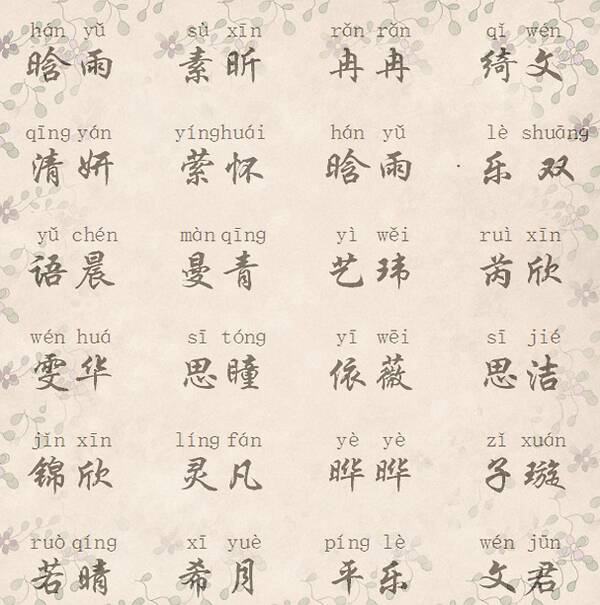 hán yǔ sù xīn rǎn rǎn qǐ wén
晗雨 素昕 冉冉 绮文
qīng yán yíng huái hán yǔ lè shuāng
清妍 萦怀 晗雨 乐双
yǔ chén màn qīng yì wěi ruì xīn
语晨 曼青 艺玮 芮欣
wén huá sī tóng yī wēi sī jié
雯华 思瞳 依薇 思洁
jǐn xīn líng fán yè yè zǐ xuán
锦欣 灵凡 晔晔 子璇
ruò qíng xī yuè píng lè wén jūn
若晴 希月 平乐 文君